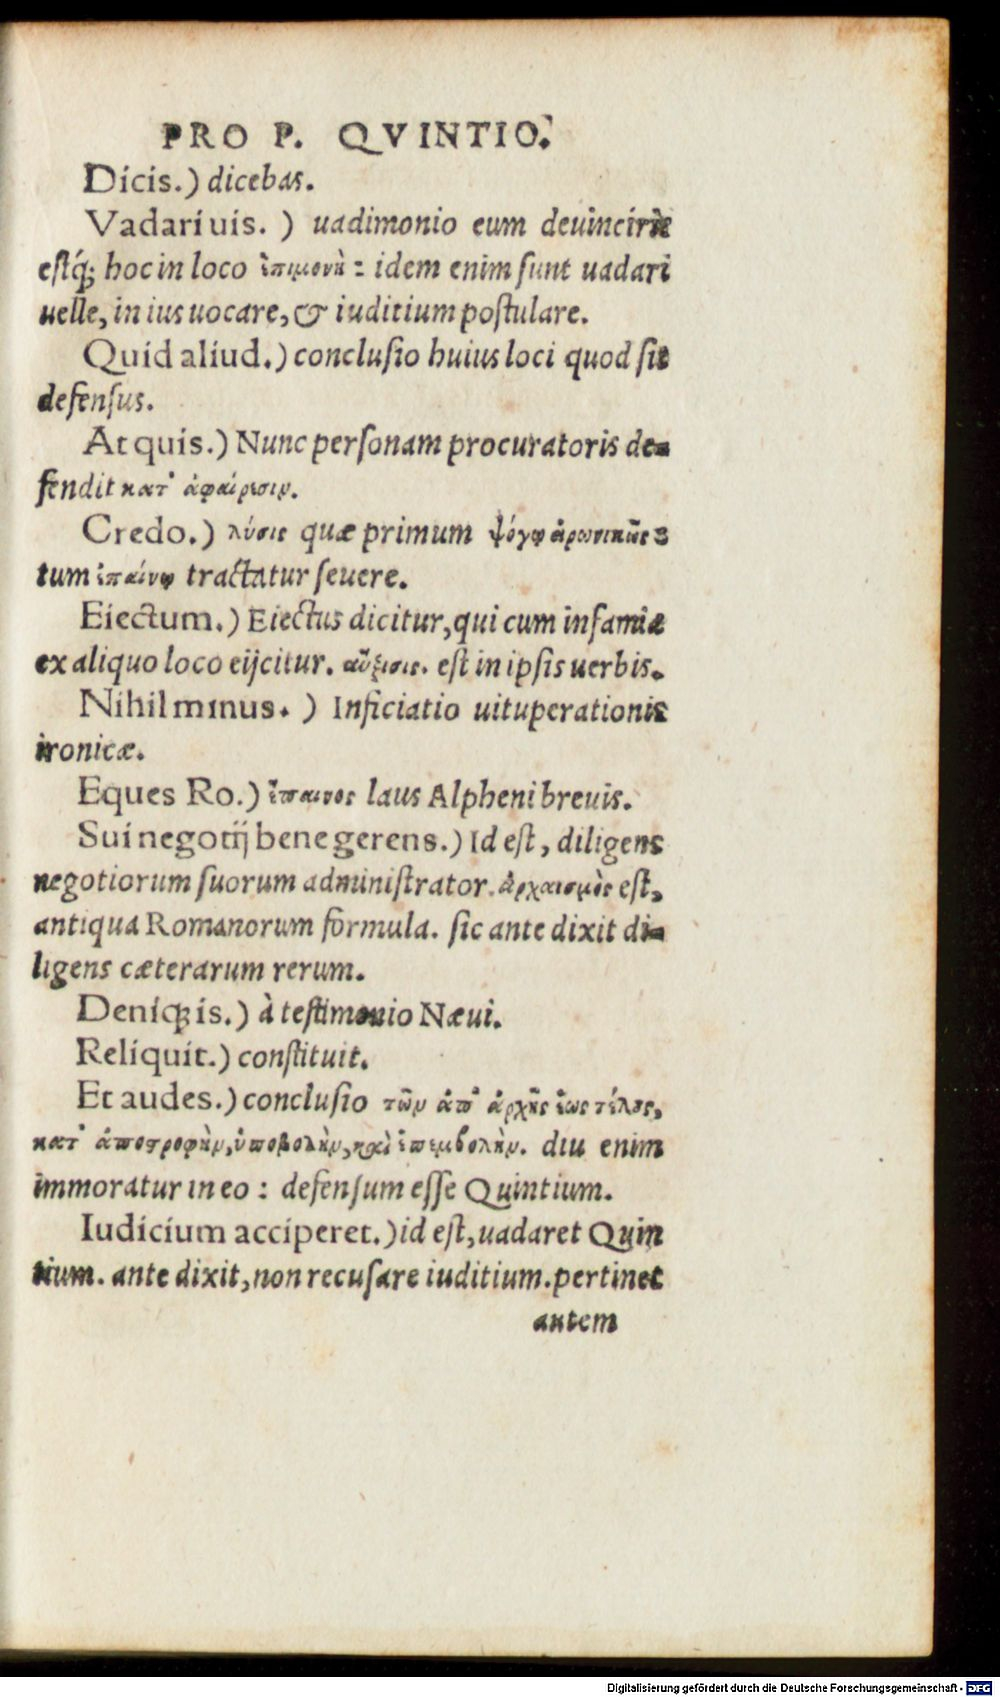 PRO P. QVINTIO.
Dicis.) dicebas.
Vadari uis. ) uadimonio eum deuincire
estq́; hoc in loco ἐπιμονὴ : idem enim sunt uadari
uelle, in ius uocare, & iuditium postulare.
Quid aliud.) conclusio huius loci quod sit
defensus.
At quis.) Nunc personam procuratoris de=
fendit κατ᾽ ἀφαίρεσιν.
Credo.) λύσις quæ primum ψόγῳ
tum ἐπαίνῳ tractatur seuere.
Eiectum.) Eiectus dicitur, qui cum infamia
ex aliquo loco eijcitur. αὔξισις. est in ipsis uerbis.
Nihil minus. ) Inficiatio uituperationis
ironicæ.
Eques Ro.) ἔπαινος laus Alpheni breuis.
Sui negotij bene gerens.) Id est, diligens
negotiorum suorum administrator. ἀρχαισμὸς est,
antiqua Romanorum formula. sic ante dixit di=
ligens cæterarum rerum.
Deniq; is.) à testimonio Næui.
Reliquit.) constituit.
Et audes.) conclusio τῶν ἀπ᾽ ἀρχῆς ἕως τέλους,
κατ᾽ ἀποστροφὴν, ὑποβολὴν, καὶ ἐπεμβολὴν. diu enim
immoratur in eo : defensum esse Quintium.
Iudicium acciperet.) id est, uadaret Quin
tium. ante dixit, non recusare iuditium. pertinet
autem
Digitalisierung gefördert durch die Deutsche Forschungsgemeinschaft - DFG